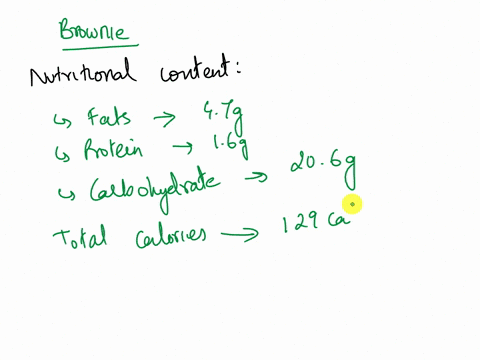 Brownie
Nutritional content:
↳ Fats → 4.7g
↳ Protein → 1.6g
↳ Carbohydrate → 20.6g
Total calories → 129 ca